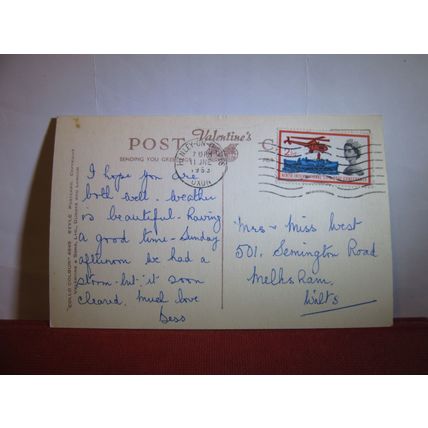 POST
Valentine's
SENDING YOU GREE
HENLEY-ON-
11 JNE
1963
OXON
2½
I hope you are
both well - weather
is beautiful - having
a good time - Sunday
afternoon we had a
storm - but it soon
cleared. Much love
Bess
Mrs - Miss West
501, Semington Road
Melksham,
Wilts
"COLLO COLOUR" STYLE POSTCARD. COPYRIGHT
VALENTINE & SONS, LTD., DUNDEE AND LONDON